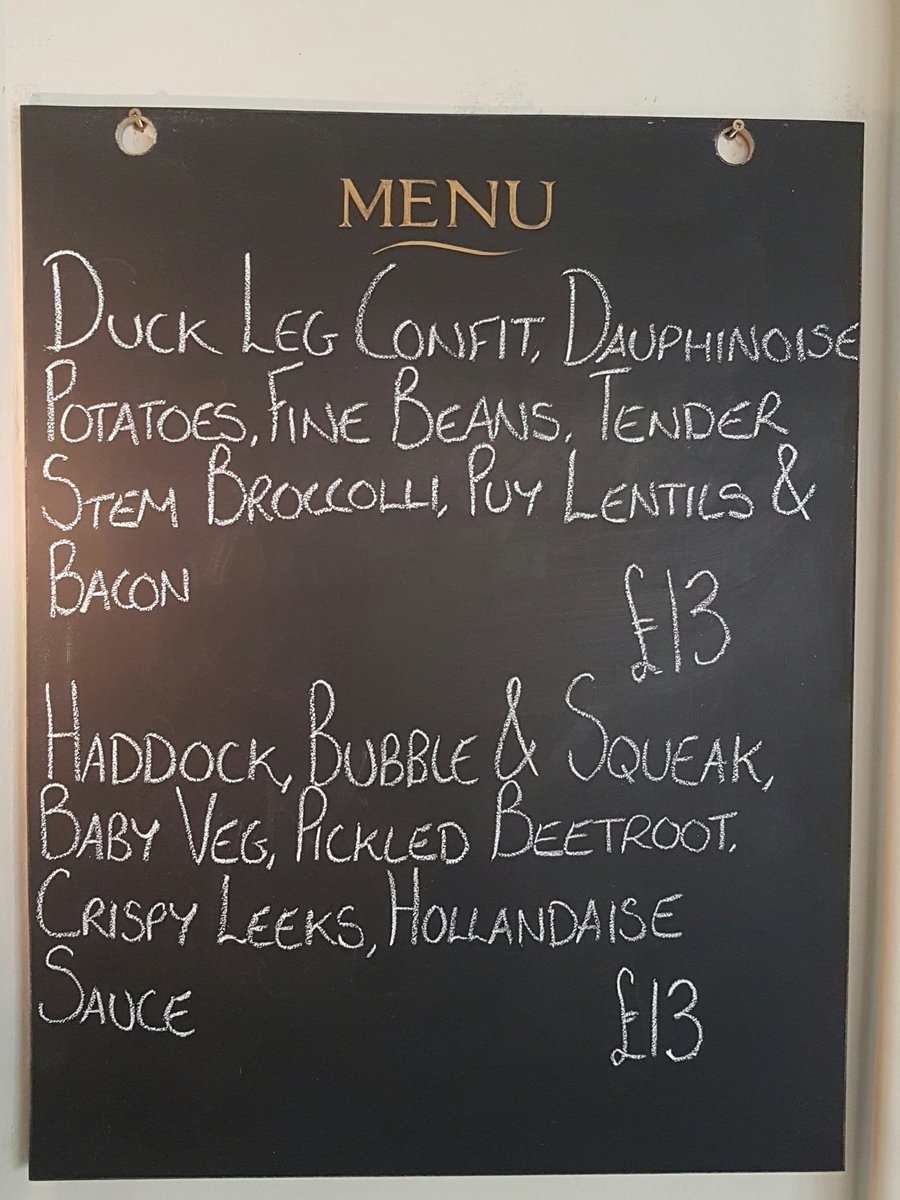 MENU
DUCK LEG CONFIT, DAUPHINOISE
POTATOES, FINE BEANS, TENDER
STEM BROCCOLLI, PUY LENTILS &
BACON
£13
HADDOCK, BUBBLE & SQUEAK,
BABY VEG, PICKLED BEETROOT,
CRISPY LEEKS, HOLLANDAISE
SAUCE
£13